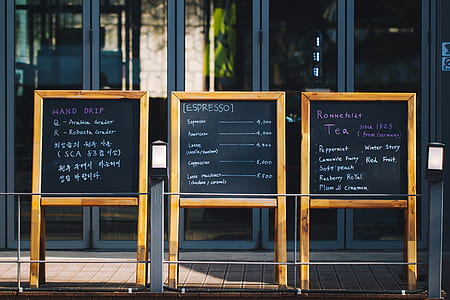 HAND DRIP
Q - Arabica Grader
R - Robusta Grader
(SCA 83점 이상)
[ESPRESSO]
Espresso 4,000
Americano 4,000
Latte 4,500
(vanilla/hazelnut)
Cappuccino 5,000
Latte macchiato 5,500
(chocolate / caramel)
Ronnefeldt
Tea since 1823
(from Germany)
Peppermint Winter Story
Camomile Fairy Red Fruit
Soft peach
Rasberry Royal
Plum & cinnamon